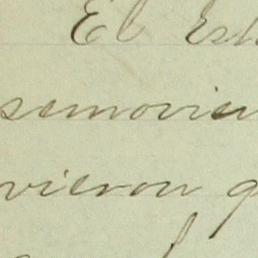 El Est
semovien
vieron q